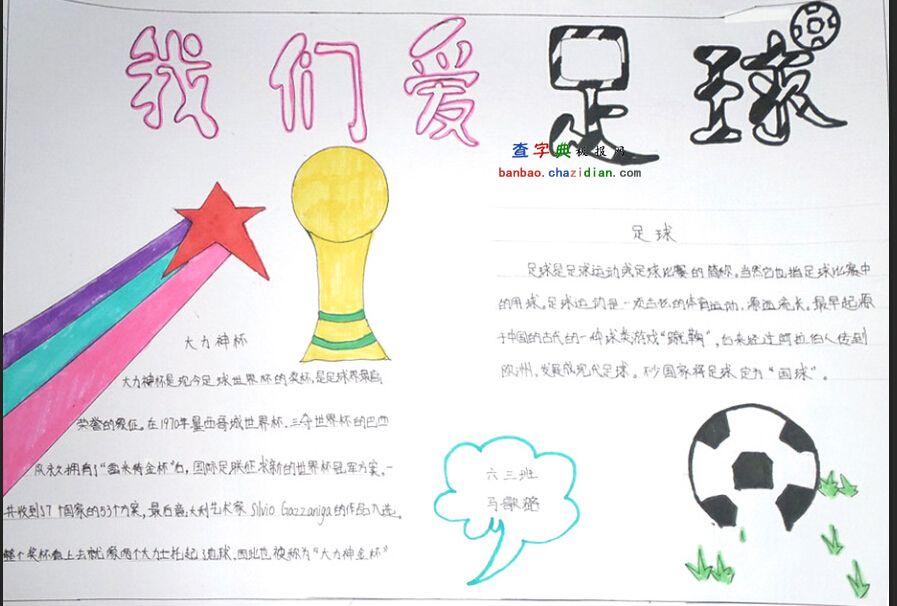 我们爱足球
查字典板报网
banbao.chazidian.com
足球
足球是足球运动或足球比赛的简称,当然它也指足球比赛中
的用球。足球运动是一项古老的体育运动,源远流长。最早起源
于中国的古代的一种球类游戏“蹴鞠”,后来经过阿拉伯人传到
欧洲,发展成现代足球。不少国家将足球定为“国球”。
大力神杯
大力神杯是现今足球世界杯的奖杯,是足球界最高
荣誉的象征。在1970年墨西哥城世界杯,三夺世界杯的巴西
永久拥有了“雷米特金杯”后,国际足联征求新的世界杯冠军方案,一
共收到57个国家的53个方案,最后意大利艺术家Silvio Gazzaniga的作品入选。
整个奖杯看上去就像两个大力士托起了地球,因此也被称为“大力神金杯”
六三班
马歌